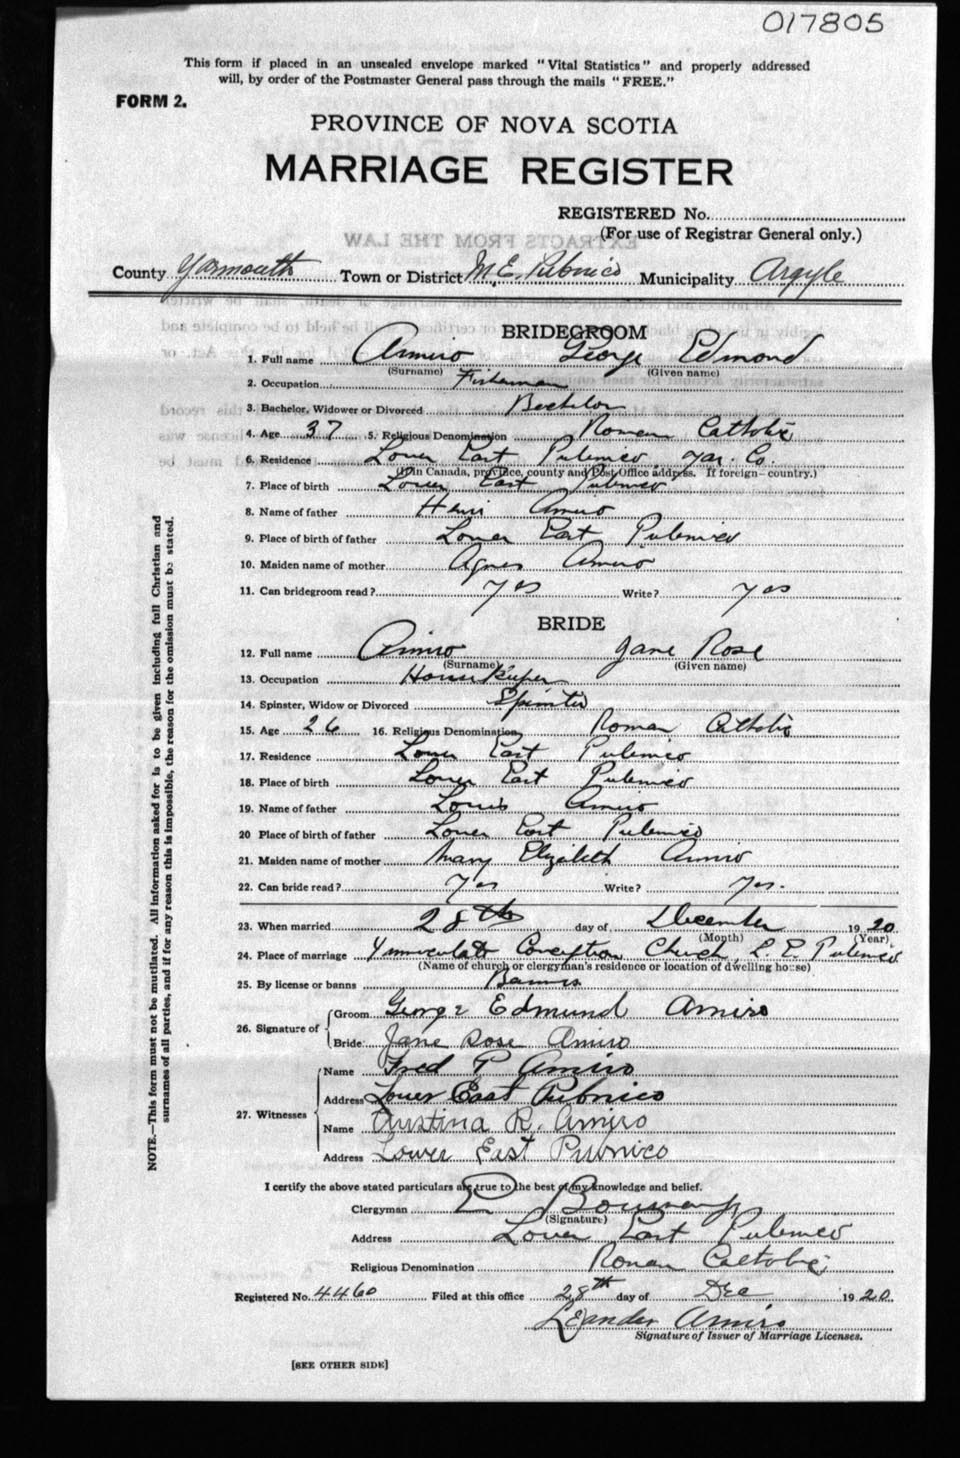 017805
This form if placed in an unsealed envelope marked "Vital Statistics" and properly addressed
will, by order of the Postmaster General pass through the mails "FREE."
FORM 2.
PROVINCE OF NOVA SCOTIA
MARRIAGE REGISTER
REGISTERED No.
(For use of Registrar General only.)
County Yarmouth Town or District M. E. Pubnico Municipality Argyle
BRIDEGROOM
1. Full name Amiro George Edmond
(Surname) (Given name)
2. Occupation Fisherman
3. Bachelor, Widower or Divorced Bachelor
4. Age 37 5. Religious Denomination Roman Catholic
6. Residence Lower East Pubnico, Yar. Co.
(If in Canada, province, county and Post Office address. If foreign—country.)
7. Place of birth Lower East Pubnico
8. Name of father Henri Amiro
9. Place of birth of father Lower East Pubnico
10. Maiden name of mother Agnes Amiro
11. Can bridegroom read? Yes Write? Yes
BRIDE
12. Full name Amiro Jane Rose
(Surname) (Given name)
13. Occupation House Keeper
14. Spinster, Widow or Divorced Spinster
15. Age 26 16. Religious Denomination Roman Catholic
17. Residence Lower East Pubnico
18. Place of birth Lower East Pubnico
19. Name of father Louis Amiro
20 Place of birth of father Lower East Pubnico
21. Maiden name of mother Mary Elizabeth Amiro
22. Can bride read? Yes Write? Yes.
23. When married 28th day of December 1920
(Month) (Year)
24. Place of marriage Immaculate Conception Church, L. E. Pubnico
(Name of church or clergyman's residence or location of dwelling house)
25. By license or banns Banns
26. Signature of Groom George Edmund Amiro
Bride Jane Rose Amiro
27. Witnesses Name Fred P Amiro
Address Lower East Pubnico
Name Austina R. Amiro
Address Lower East Pubnico
I certify the above stated particulars are true to the best of my knowledge and belief.
Clergyman
(Signature)
Address Lower East Pubnico
Religious Denomination Roman Catholic
Registered No. 4460 Filed at this office 28th day of Dec 1920
Leander Amiro
Signature of Issuer of Marriage Licenses.
[SEE OTHER SIDE]
NOTE.—This form must not be mutilated. All information asked for is to be given including full Christian and
surnames of all parties, and if for any reason this is impossible, the reason for the omission must be stated.